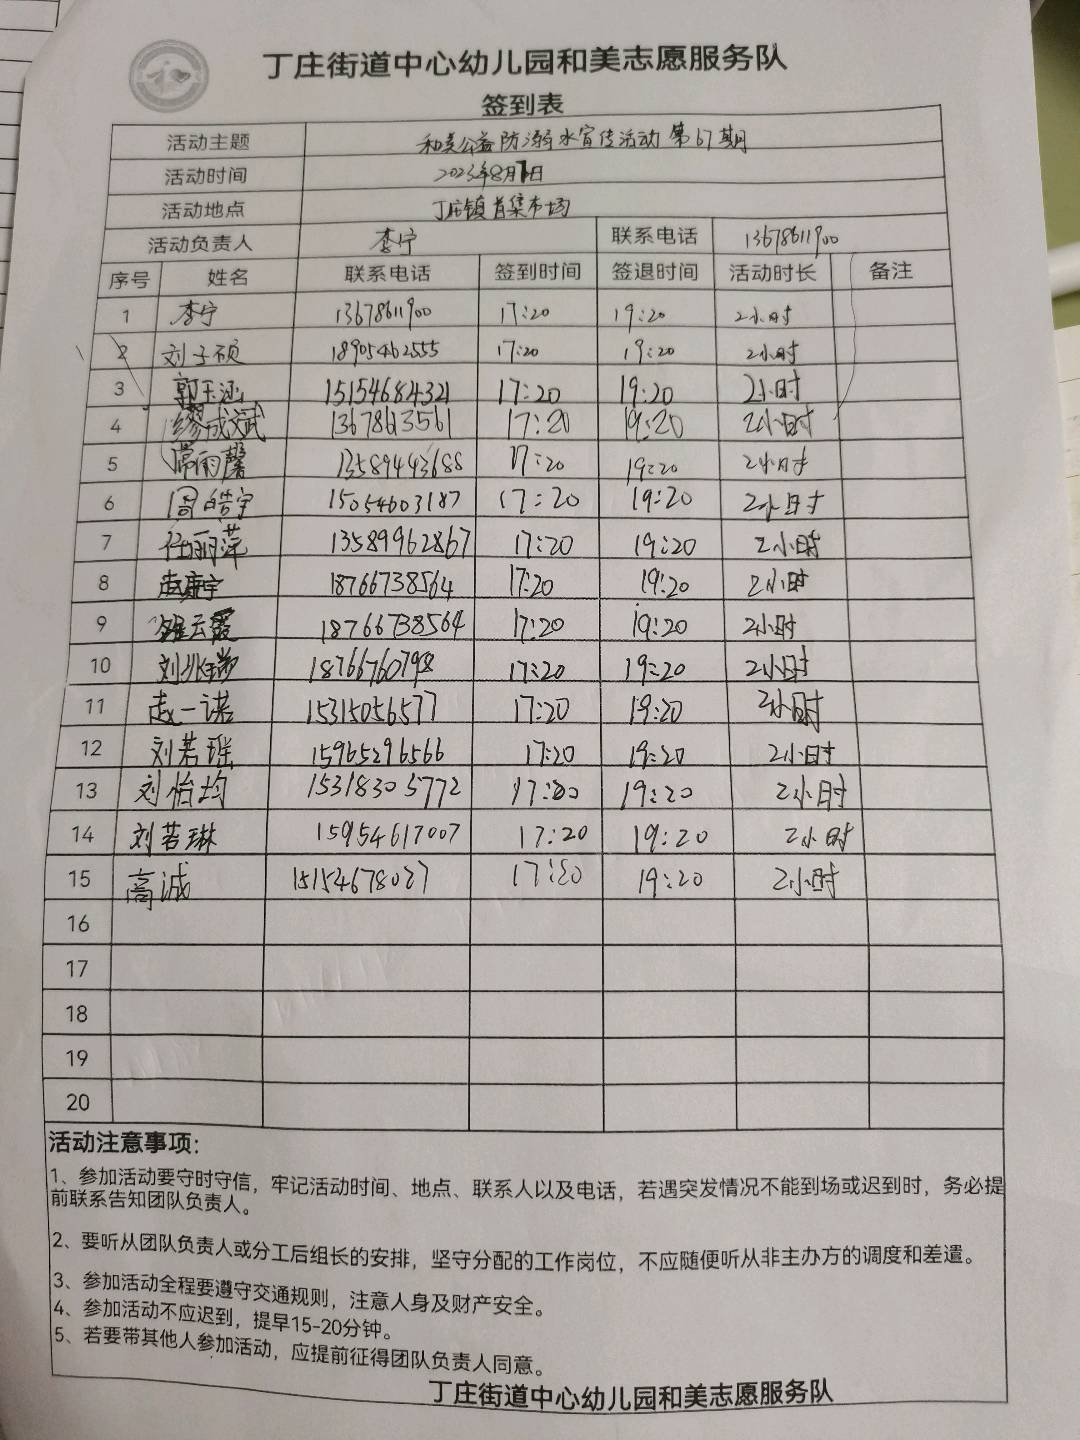 丁庄街道中心幼儿园和美志愿服务队
签到表
活动主题 和美公益防溺水宣传活动 第67期
活动时间 2023年8月1日
活动地点 丁庄镇首集市场
活动负责人 李宁 联系电话 13678611900
序号 姓名 联系电话 签到时间 签退时间 活动时长 备注
1 李宁 13678611900 17:20 19:20 2小时
2 刘子硕 18905462555 17:20 19:20 2小时
3 郭玉涵 15154684321 17:20 19:20 2小时
4 缪成斌 13678613561 17:20 19:20 2小时
5 常雨馨 13589443688 17:20 19:20 2小时
6 周皓宇 15054603187 17:20 19:20 2小时
7 任丽萍 13589962867 17:20 19:20 2小时
8 赵康宁 18766738564 17:20 19:20 2小时
9 云霞 18766738564 17:20 19:20 2小时
10 刘兆瑞 18766760798 17:20 19:20 2小时
11 赵一诺 15315056577 17:20 19:20 2小时
12 刘若瑶 15965296566 17:20 19:20 2小时
13 刘怡均 15318305772 17:20 19:20 2小时
14 刘若琳 15954617007 17:20 19:20 2小时
15 高诚 15154678027 17:20 19:20 2小时
16
17
18
19
20
活动注意事项：
1、参加活动要守时守信，牢记活动时间、地点、联系人以及电话，若遇突发情况不能到场或迟到时，务必提
前联系告知团队负责人。
2、要听从团队负责人或分工后组长的安排，坚守分配的工作岗位，不应随便听从非主办方的调度和差遣。
3、参加活动全程要遵守交通规则，注意人身及财产安全。
4、参加活动不应迟到，提早15-20分钟。
5、若要带其他人参加活动，应提前征得团队负责人同意。
丁庄街道中心幼儿园和美志愿服务队